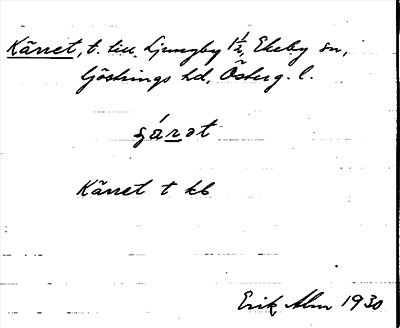 Kärret, t. till Ljungby 1½, Ekeby sn,
Göstrings hd, Österg. l.
Kärret t kb
Erik Alm 1930